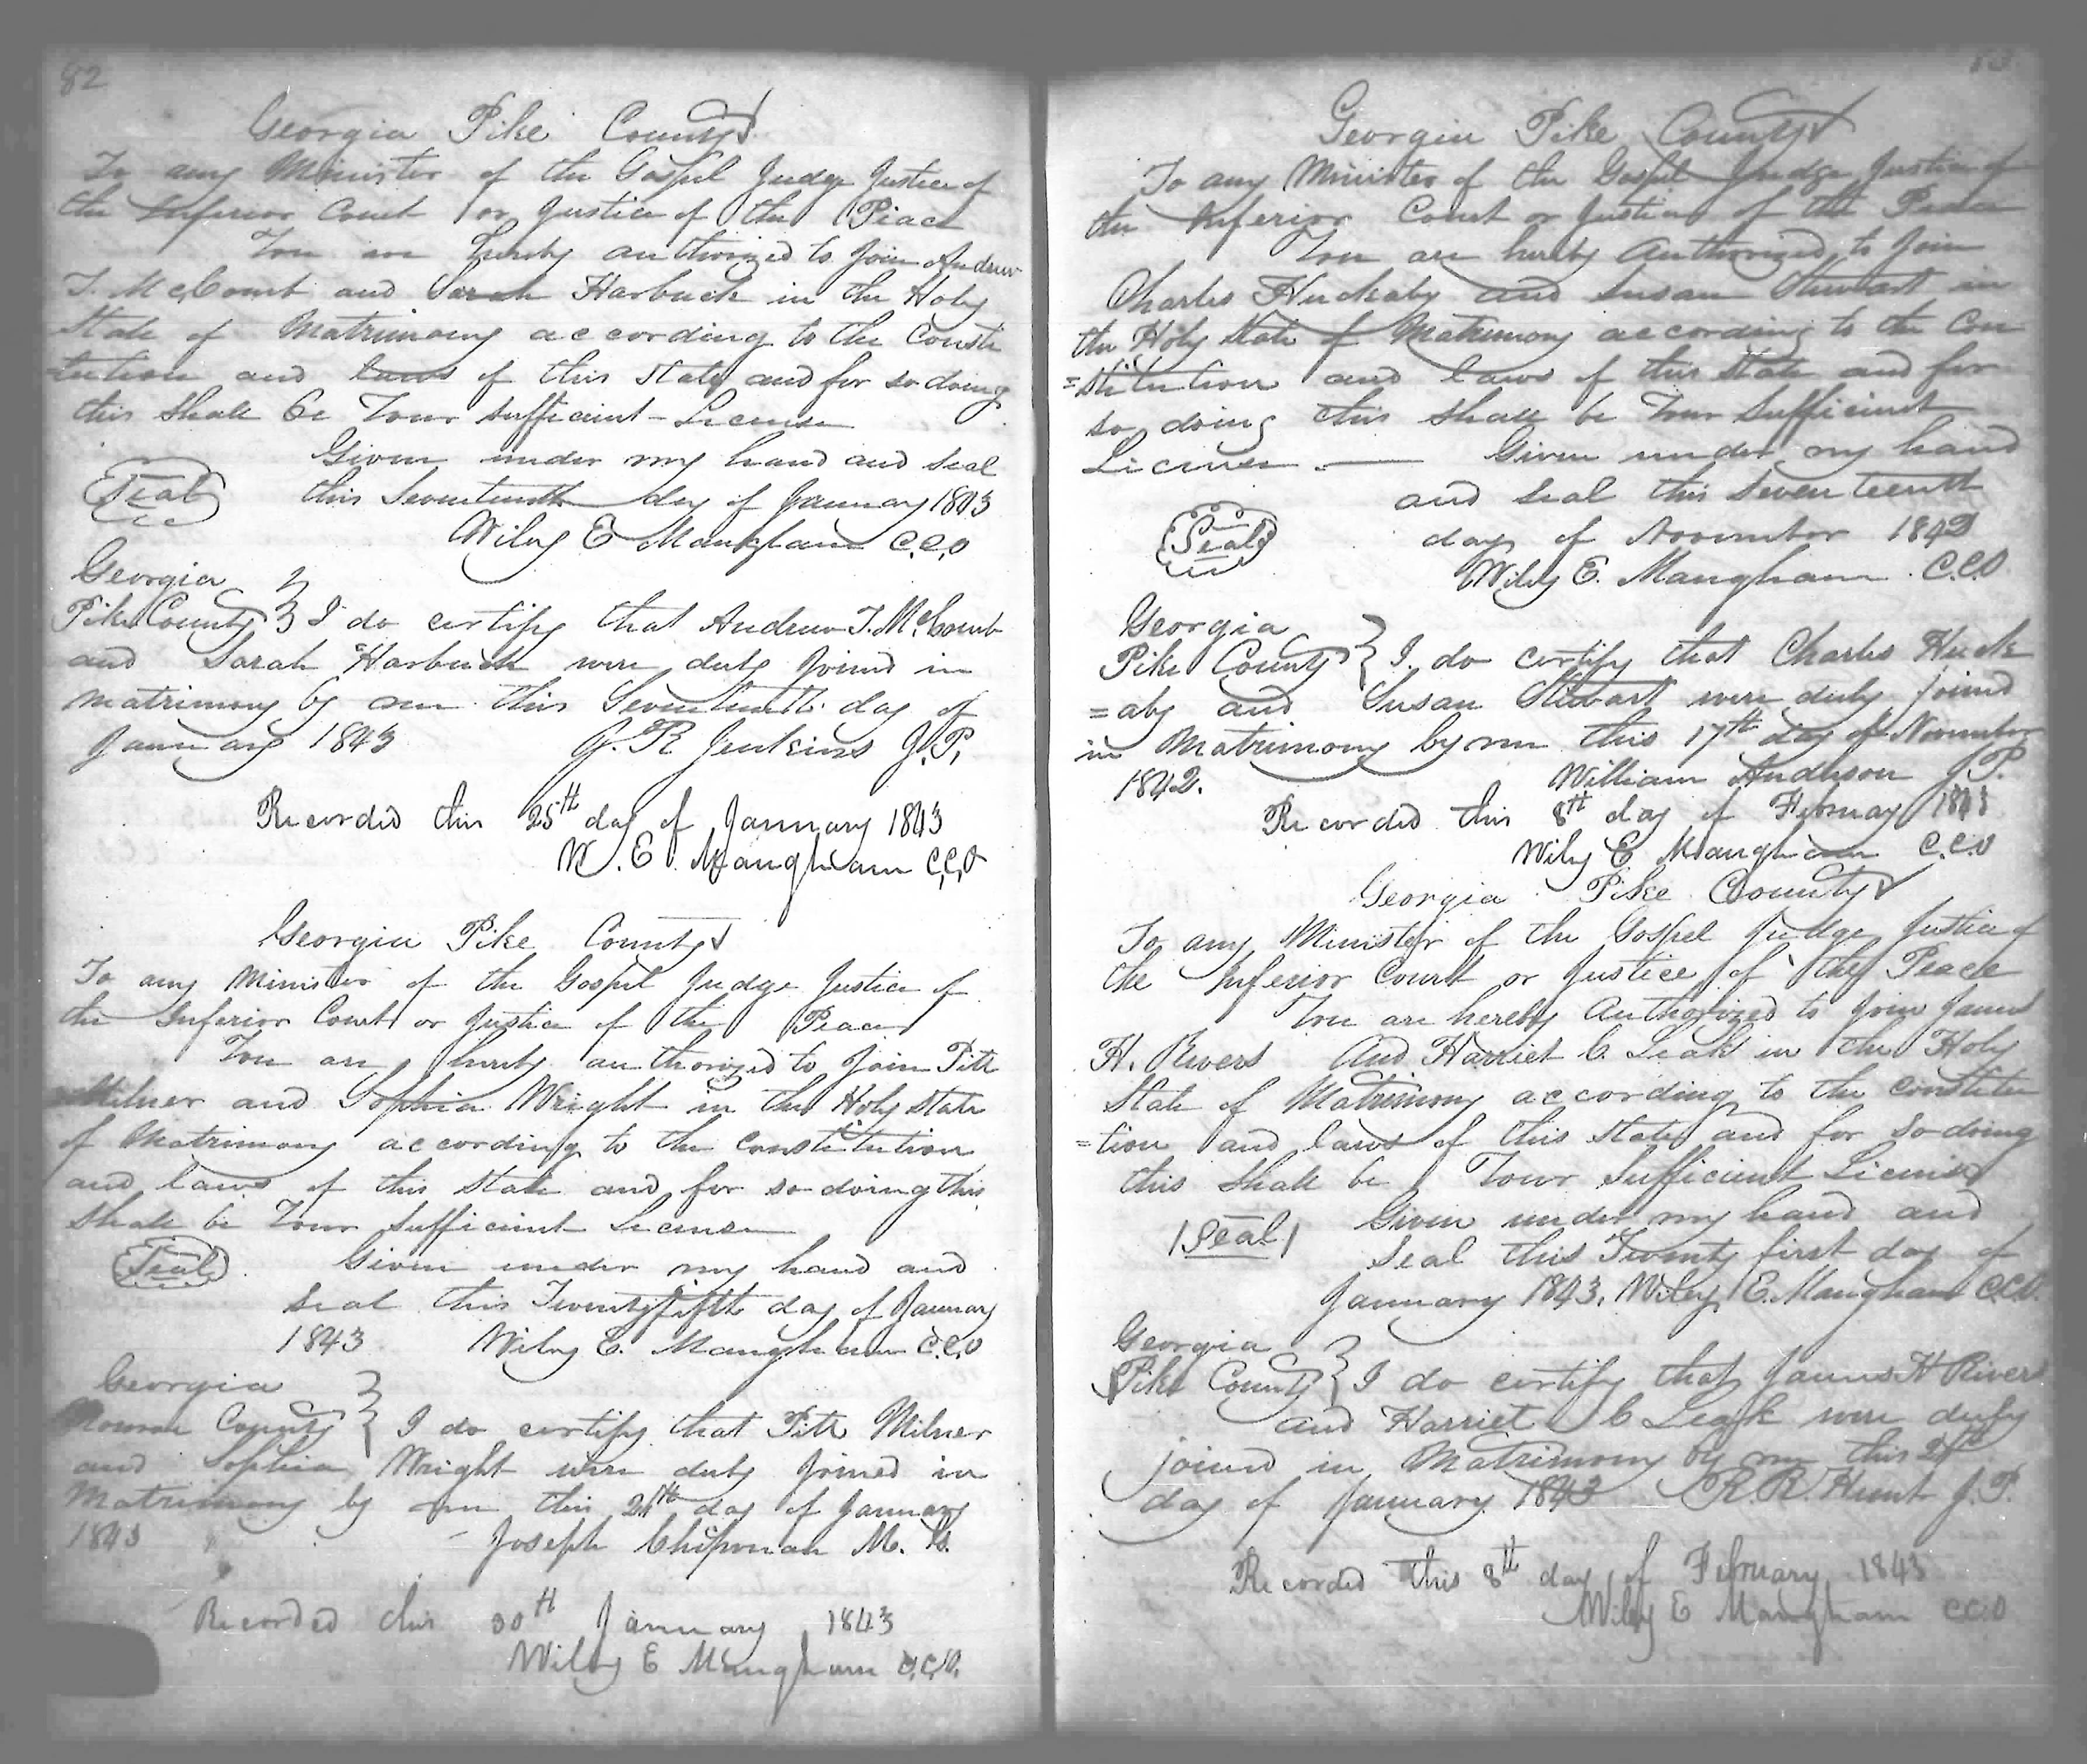 82
Georgia Pike County
To any Minister of the Gospel Judge Justice of
the Inferior Court or Justice of the Peace
You are hereby authorized to Join Andrew
T. McComb and Sarah Harbuck in the Holy
State of Matrimony according to the Consti
tution and laws of this State and for so doing
this Shall be Your sufficient License
Given under my hand and seal
Seal this Seventeenth day of January 1843
Wiley E Mangham C.C.O
Georgia
Pike County } I do certify that Andrew T. McComb
and Sarah Harbuck were duly Joined in
Matrimony by me this Seventeenth day of
January 1843 J. R Jenkins J.P.
Recorded this 25th day of January 1843
W. E. Mangham C.C.O
Georgia Pike County
To any Minister of the Gospel Judge Justice of
the Inferior Court or Justice of the Peace
You are hereby authorized to Join Pitt
Milner and Sophia Wright in the Holy State
of Matrimony according to the Constitution
and laws of this State and for so doing this
Shall be Your Sufficient License
Seal Given under my hand and
seal this Twenty fifth day of January
1843 Wiley E. Mangham C.C.O
Georgia
Monroe County } I do certify that Pitt Milner
and Sophia Wright were duly Joined in
Matrimony by me this day of January
1843 Joseph Chipman M. G.
Recorded this 30th January 1843
Wiley E Mangham C.C.O.
Georgia Pike County
To any Minister of the Gospel Judge Justice of
the Inferior Court or Justice of the Peace
You are hereby Authorized to Join
Charles Huckaby and Susan Stewart in
the Holy State of Matrimony according to the Con
=stitution and laws of this State and for
so doing this Shall be Your Sufficient
License. Given under my hand
and seal this Seventeenth
Seal day of November 1842
Wiley E. Mangham C.C.O
Georgia
Pike County } I do certify that Charles Huck
=aby and Susan Stewart were duly joined
in Matrimony by me this 17th day of November
1842. William Anderson J.P.
Recorded this 8th day of February 1843
Wiley E Mangham C.C.O
Georgia Pike County
To any Minister of the Gospel Judge Justice of
the Inferior Court or Justice of the Peace
You are hereby Authorized to Join James
H. Rivers And Harriet C. Leak in the Holy
State of Matrimony according to the constitu
=tion and laws of this State and for so doing
this Shall be Your Sufficient License
Seal Given under my hand and
Seal this Twenty first day of
January 1843. Wiley E. Mangham C.C.O.
Georgia
Pike County } I do certify that James H Rivers
and Harriet C Leak were duly
joined in Matrimony by me this
day of January 1843 R. R. Hunt J.P.
Recorded this 8th day of February 1843
Wiley E Mangham C.C.O